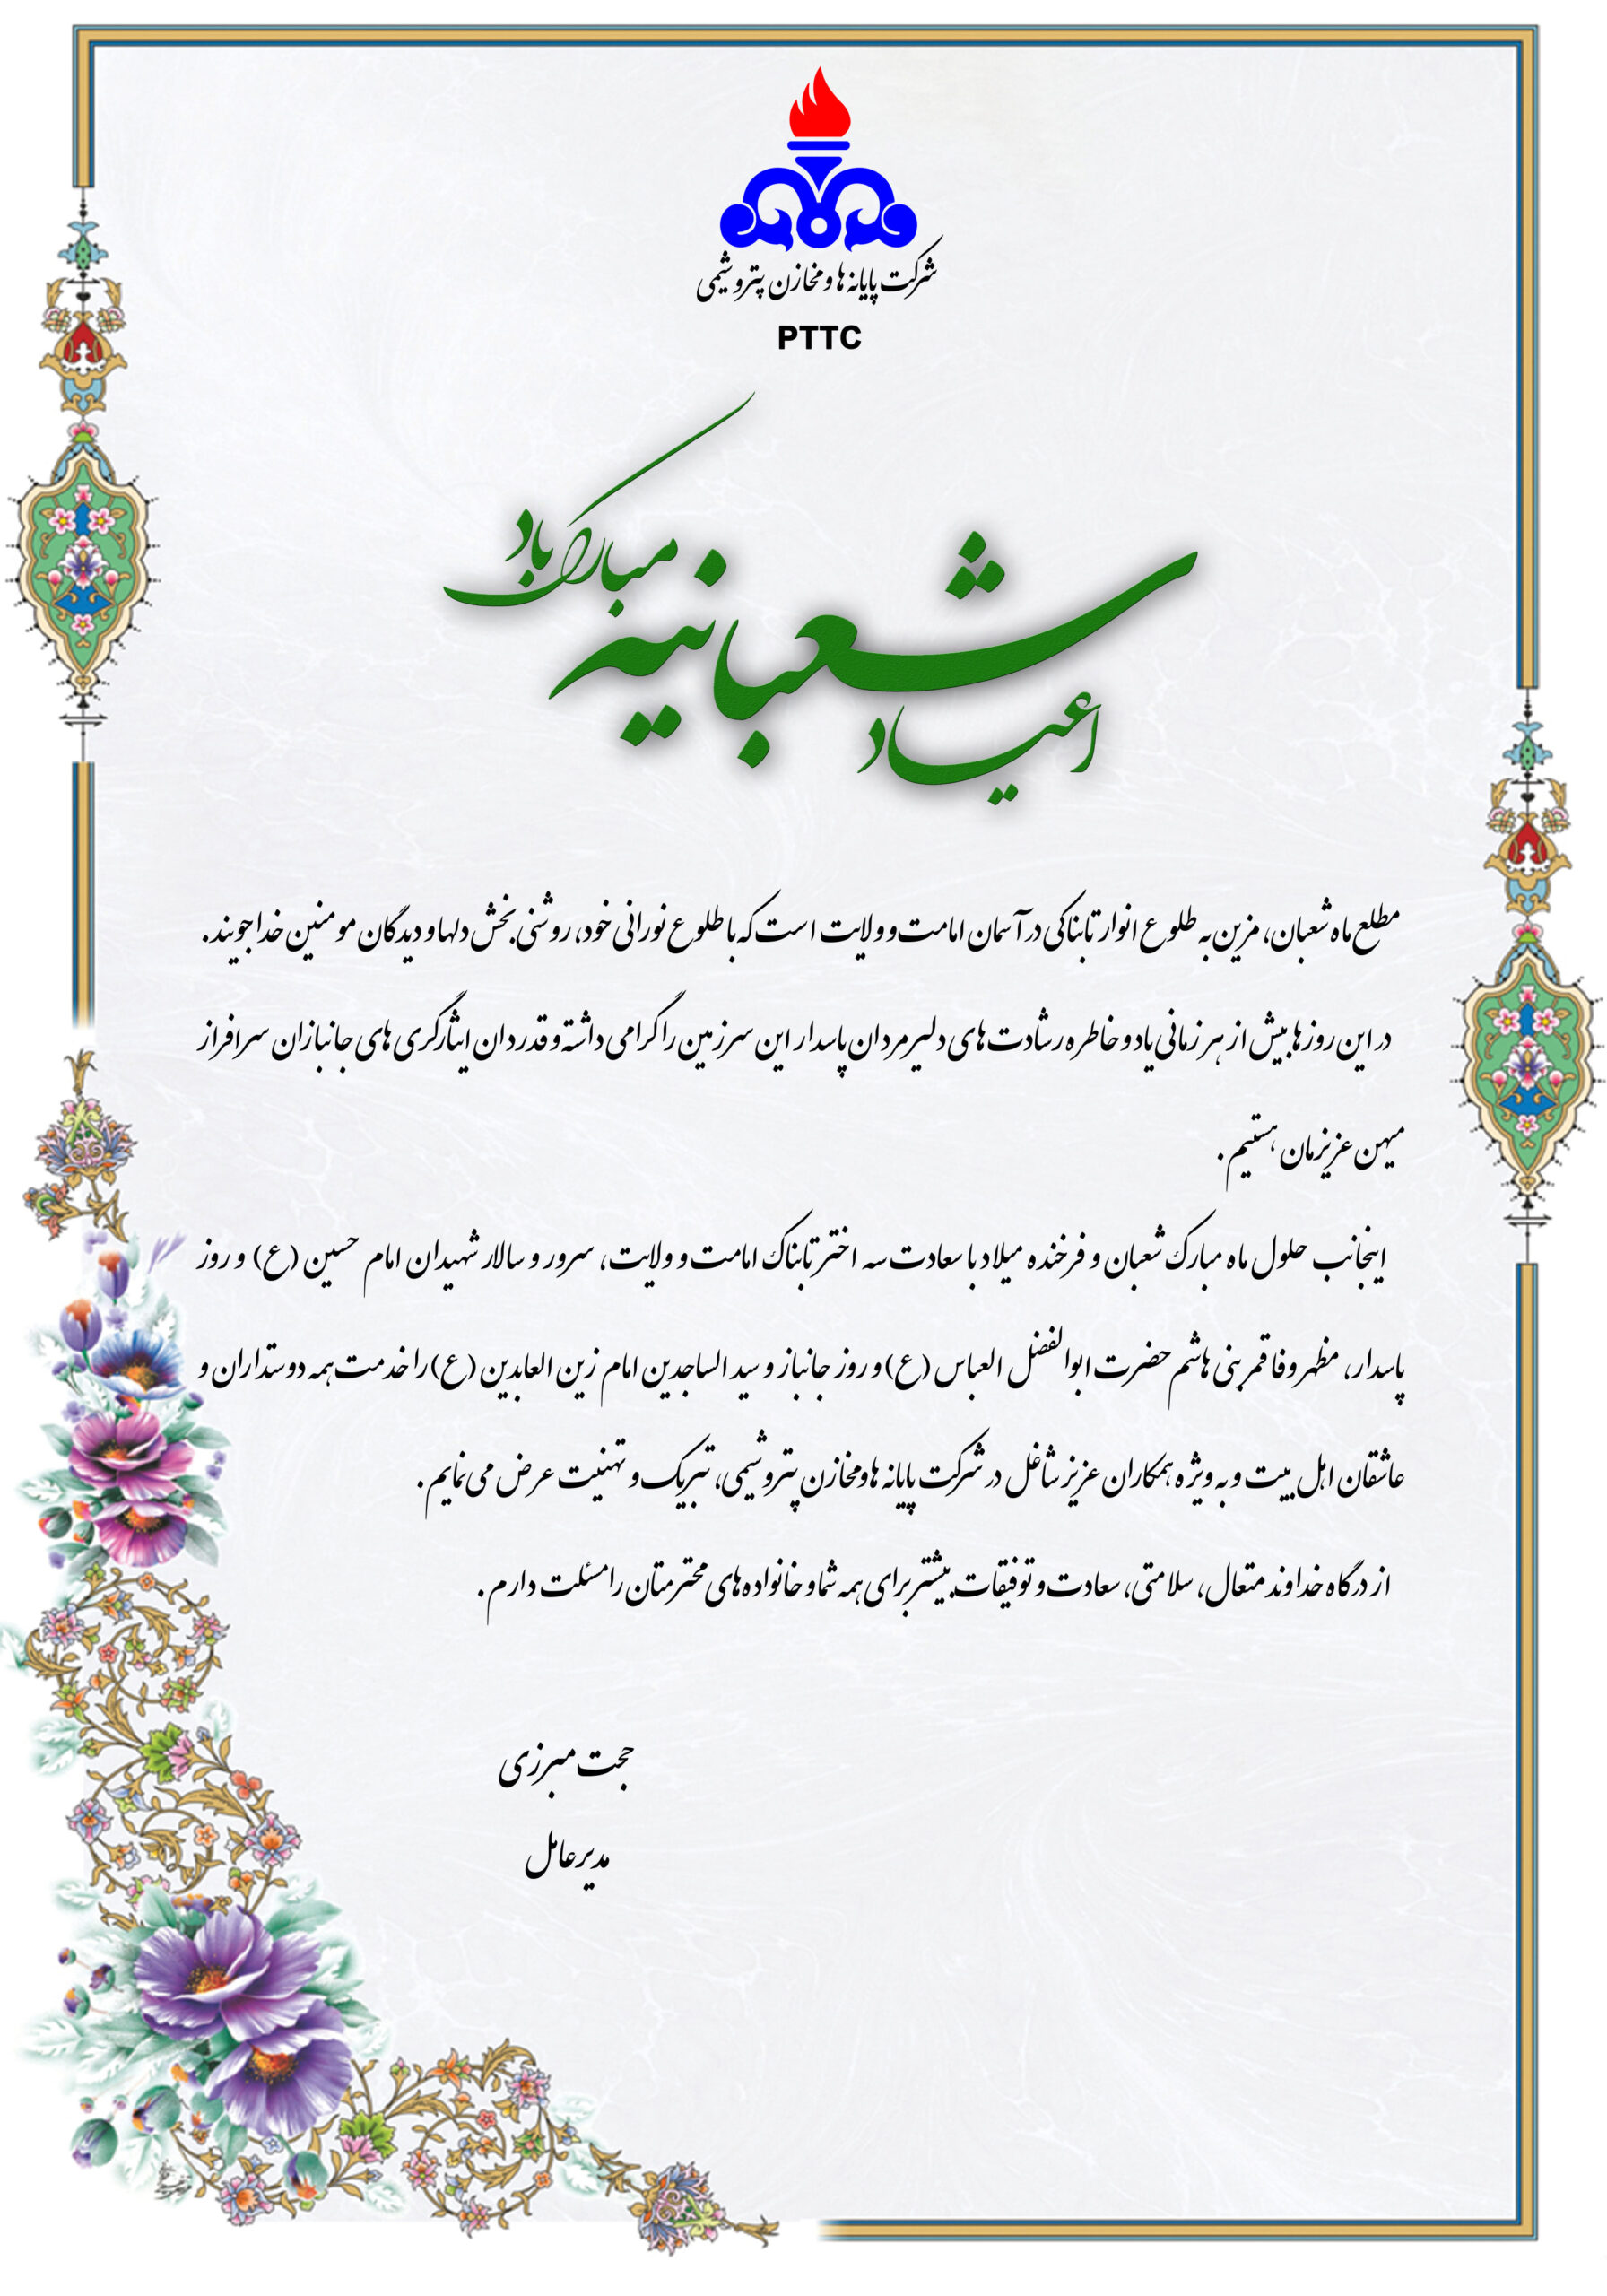 شرکت پایانه ها و مخازن پتروشیمی
PTTC
اعیاد شعبانیه مبارک باد
مطلع ماه شعبان، مزین به طلوع انوار تابناکی در آسمان امامت و ولایت است که با طلوع نورانی خود، روشنی بخش دلها و دیدگان مومنین خداجویند.
در این روزها بیش از هر زمانی یاد و خاطره رشادت های دلیرمردان پاسدار این سرزمین را گرامی داشته و قدردان ایثارگری های جانبازان سرافراز
میهن عزیزمان هستیم.
اینجانب حلول ماه مبارک شعبان و فرخنده میلاد با سعادت سه اختر تابناک امامت و ولایت، سرور و سالار شهیدان امام حسین (ع) و روز
پاسدار، مظهر وفا قمر بنی هاشم حضرت ابوالفضل العباس (ع) و روز جانباز و سید الساجدین امام زین العابدین (ع) را خدمت همه دوستداران و
عاشقان اهل بیت و به ویژه همکاران عزیز شاغل در شرکت پایانه ها و مخازن پتروشیمی، تبریک و تهنیت عرض می نمایم.
از درگاه خداوند متعال، سلامتی، سعادت و توفیقات بیشتر برای همه شما و خانواده های محترمتان را مسئلت دارم.
حجت مبرزی
مدیرعامل